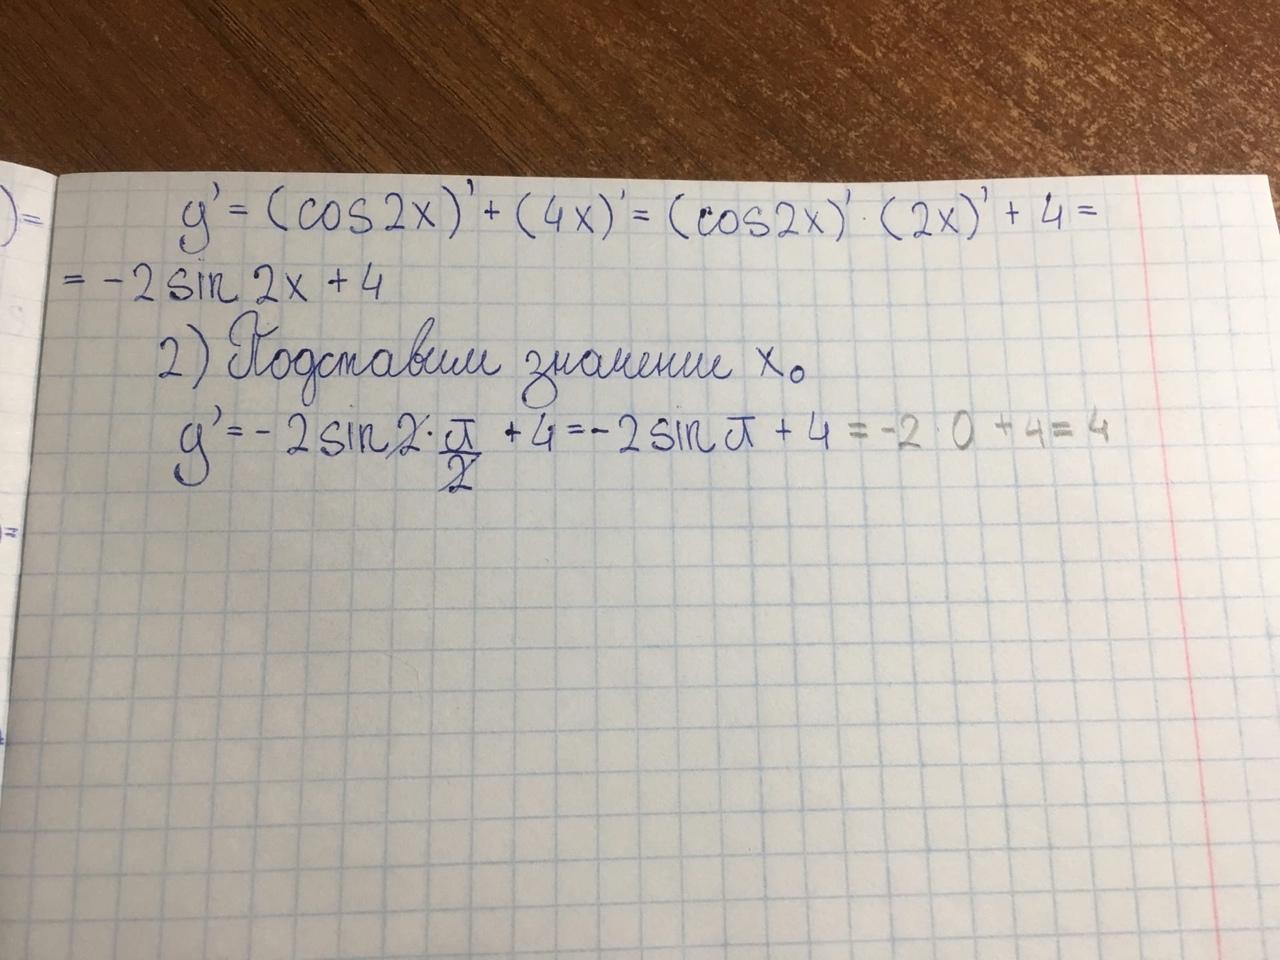 ) =
y' = (cos2x)' + (4x)' = (cos2x)' · (2x)' + 4 =
= -2 sin 2x + 4
2) Подставим значение x₀
y' = - 2 sin 2 · π/2 + 4 = - 2 sin π + 4 = -2 · 0 + 4 = 4